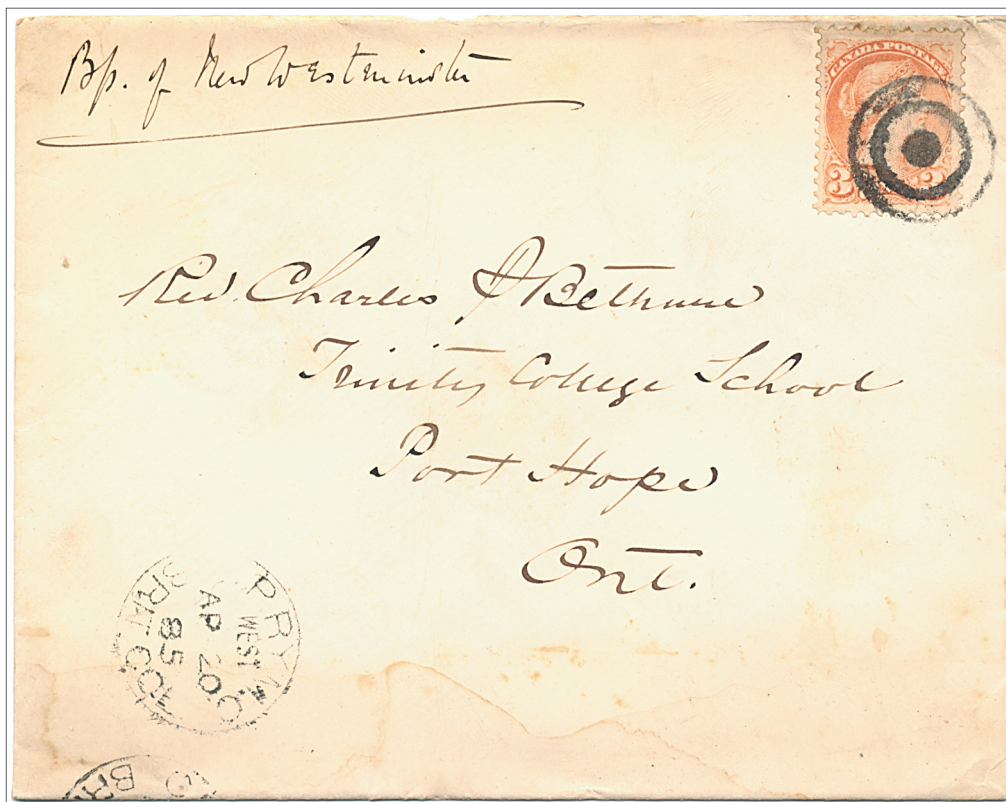 Bp. of New Westminster
CANADA POSTAGE
3 3
Rev. Charles J Bethune
Trinity College School
Port Hope
Ont.
WEST
AP 20
85
BRIT. COL
BR